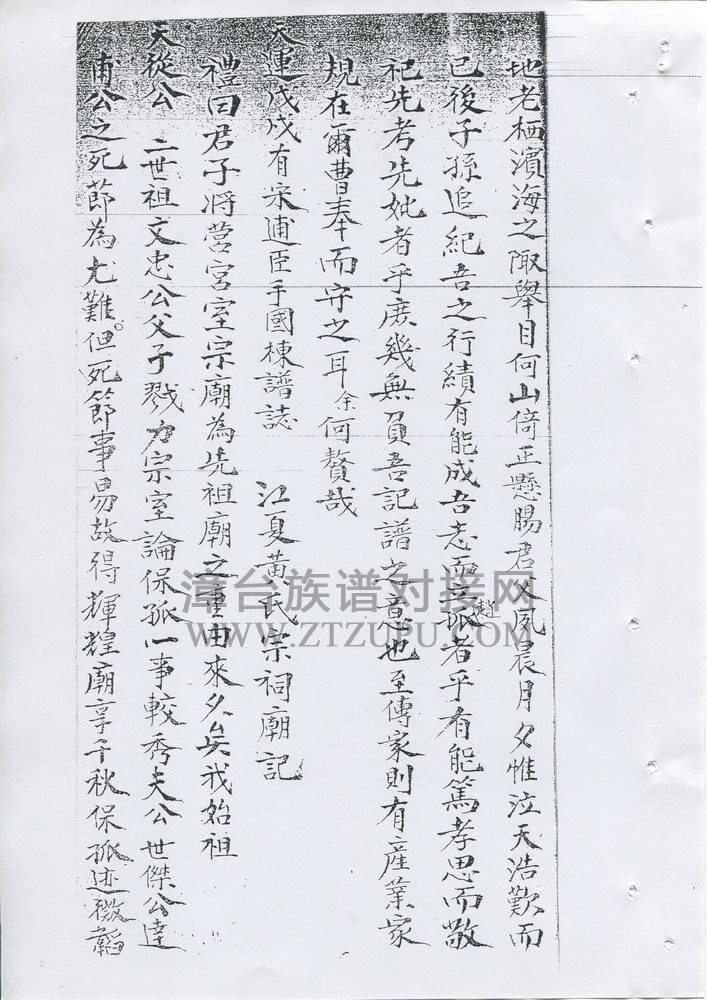 地老栖濱海之陬舉目何山倚正懸腸君父夙晨月夕惟泣天浩歎而
已後子孫追紀吾之行績有能成吾志而立趙孤者乎有能篤孝思而敬
祀先考先妣者乎庶幾無負吾記譜之意也至傳家則有産業家
規在爾曹奉而守之耳余何贅哉
天運戊戌有宋逋臣手國棟譜誌
江夏黄氏宗祠廟記
禮曰君子將營宮室宗廟為先祖廟之重由來久矣我始祖
天從公 二世祖文忠公父子戮力宗室論保孤一事較秀夫公世傑公達
甫公之死節為尤難但死節事易故得輝煌廟享千秋保孤迹微韜
漳台族谱对接网
WWW.ZTZUPU.COM